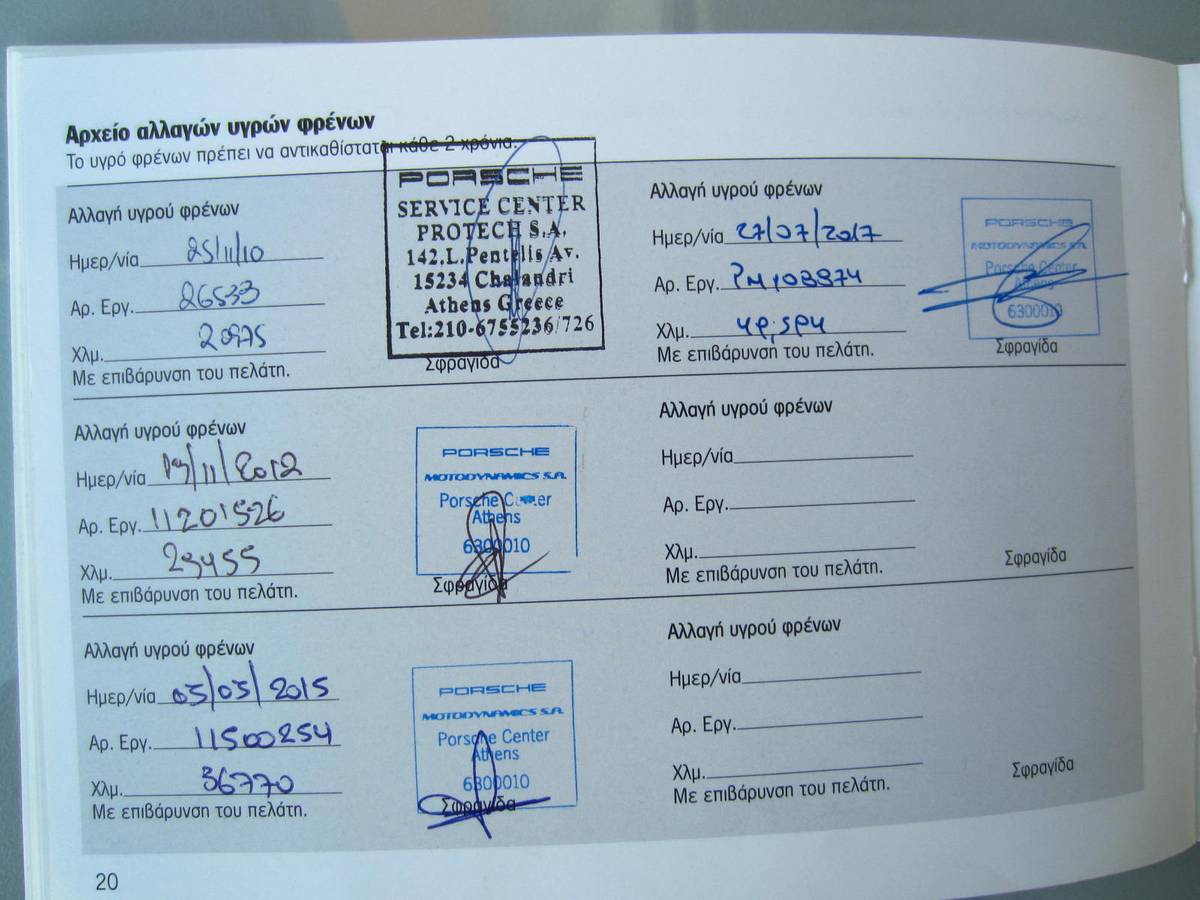 Αρχείο αλλαγών υγρών φρένων
Το υγρό φρένων πρέπει να αντικαθίσταται κάθε 2 χρόνια.
Αλλαγή υγρού φρένων
Ημερ/νία 25/11/10
Αρ. Εργ. 26533
Χλμ. 20975
Με επιβάρυνση του πελάτη.
PORSCHE
SERVICE CENTER
PROTECH S.A.
142.L.Pentelis Av.
15234 Chalandri
Athens Greece
Tel:210-6755236/726
Σφραγίδα
Αλλαγή υγρού φρένων
Ημερ/νία 19/11/2012
Αρ. Εργ. 11201526
Χλμ. 29455
Με επιβάρυνση του πελάτη.
PORSCHE
MOTODYNAMICS S.A.
Porsche Center
Athens
6300010
Σφραγίδα
Αλλαγή υγρού φρένων
Ημερ/νία 05/05/2015
Αρ. Εργ. 11500254
Χλμ. 36770
Με επιβάρυνση του πελάτη.
PORSCHE
MOTODYNAMICS S.A.
Porsche Center
Athens
6300010
Σφραγίδα
Αλλαγή υγρού φρένων
Ημερ/νία 27/07/2017
Αρ. Εργ.
Χλμ.
Με επιβάρυνση του πελάτη.
PORSCHE
MOTODYNAMICS S.A.
Porsche Center
Athens
6300010
Σφραγίδα
Αλλαγή υγρού φρένων
Ημερ/νία
Αρ. Εργ.
Χλμ.
Με επιβάρυνση του πελάτη.
Σφραγίδα
Αλλαγή υγρού φρένων
Ημερ/νία
Αρ. Εργ.
Χλμ.
Με επιβάρυνση του πελάτη.
Σφραγίδα
20